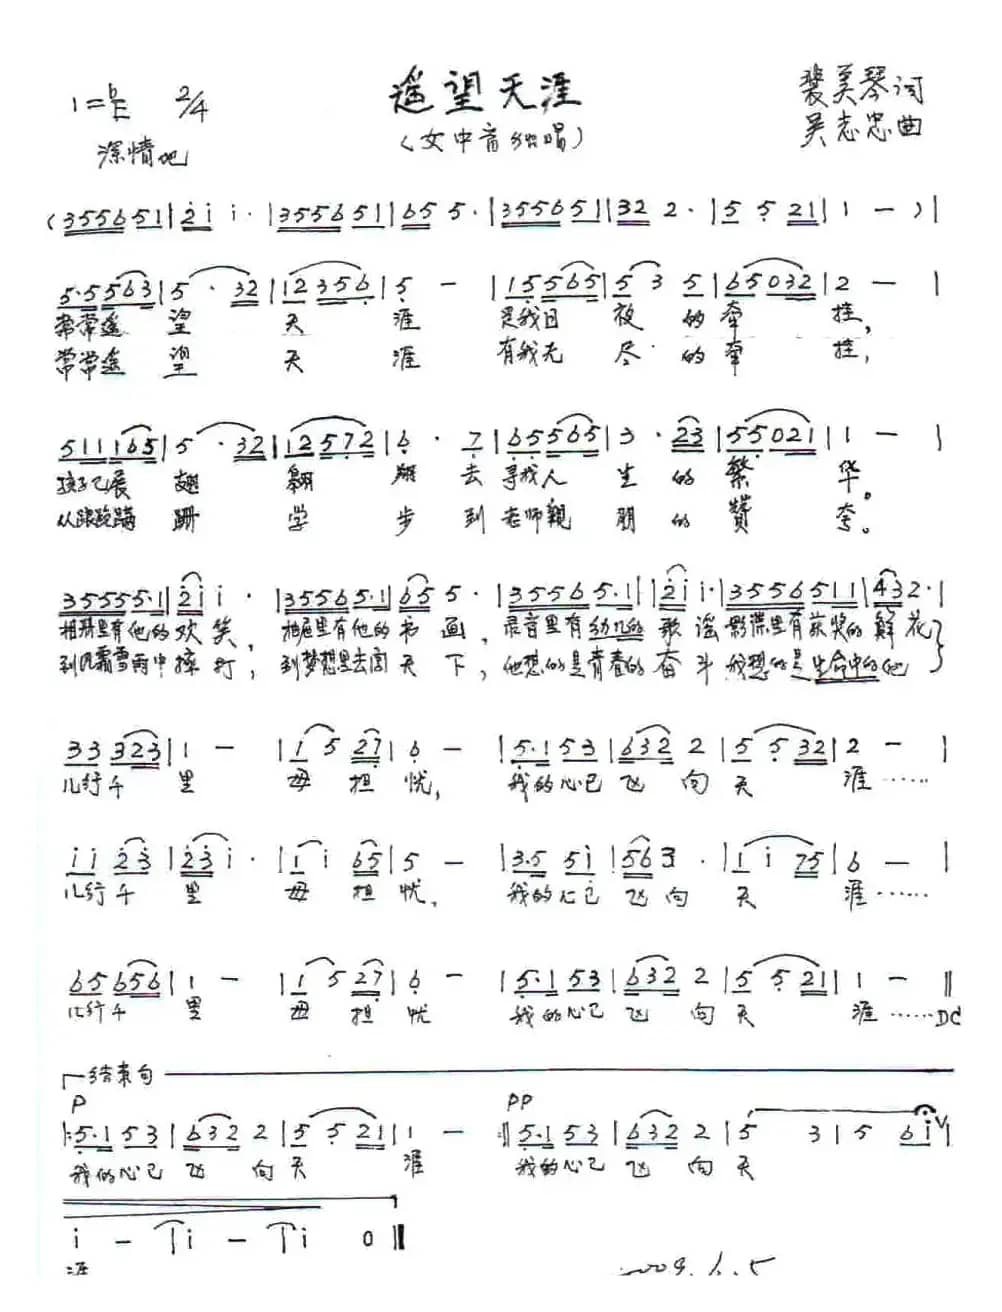 1=♭E 2/4
遥望天涯
(女中音独唱)
裴美琴词
吴志忠曲
深情地
(355651|2i i·|355651|65 5·|355651|32 2·|5 5 21|1 —)|
5·5563|5·32|12356|5 —|15565|5 3 5|65032|2 —|
常常遥望天涯 是我日夜的牵挂,
常常遥望天涯 有我无尽的牵挂,
511165|5·32|12572|6·7|65565|3·23|55021|1 —|
孩子已展翅翱翔去寻找人生的繁华。
从踉跄蹒跚学步到老师亲朋的赞夸。
35555·1|2i i·|35565·1|65 5·|35565·1|2i i·|3556511|432·|
相册里有他的欢笑,抽屉里有他的书画,录音里有幼儿的歌谣影碟里有获奖的鲜花
到风霜雪雨中摔打,到梦想里去闯天下,他想的是青春的奋斗我想的是生命中的他
33323|1 —|1 5 27|6 —|5·153|632 2|5 5 32|2 —|
儿行千里母担忧,我的心已飞向天涯……
ii 23|23i·|1 i 65|5 —|3·5 5i|563·|1 i 75|6 —|
儿行千里母担忧,我的心已飞向天涯……
65656|1 —|1 5 27|6 —|5·153|632 2|5 5 21|1 —‖
儿行千里母担忧 我的心已飞向天涯……DC
结束句
P PP
|:5·153|632 2|5 5 21|1 — :‖5·153|632 2|5 3|5 6i|
我的心已飞向天涯 我的心已飞向天
i —|i —|i 0‖
涯
6.5